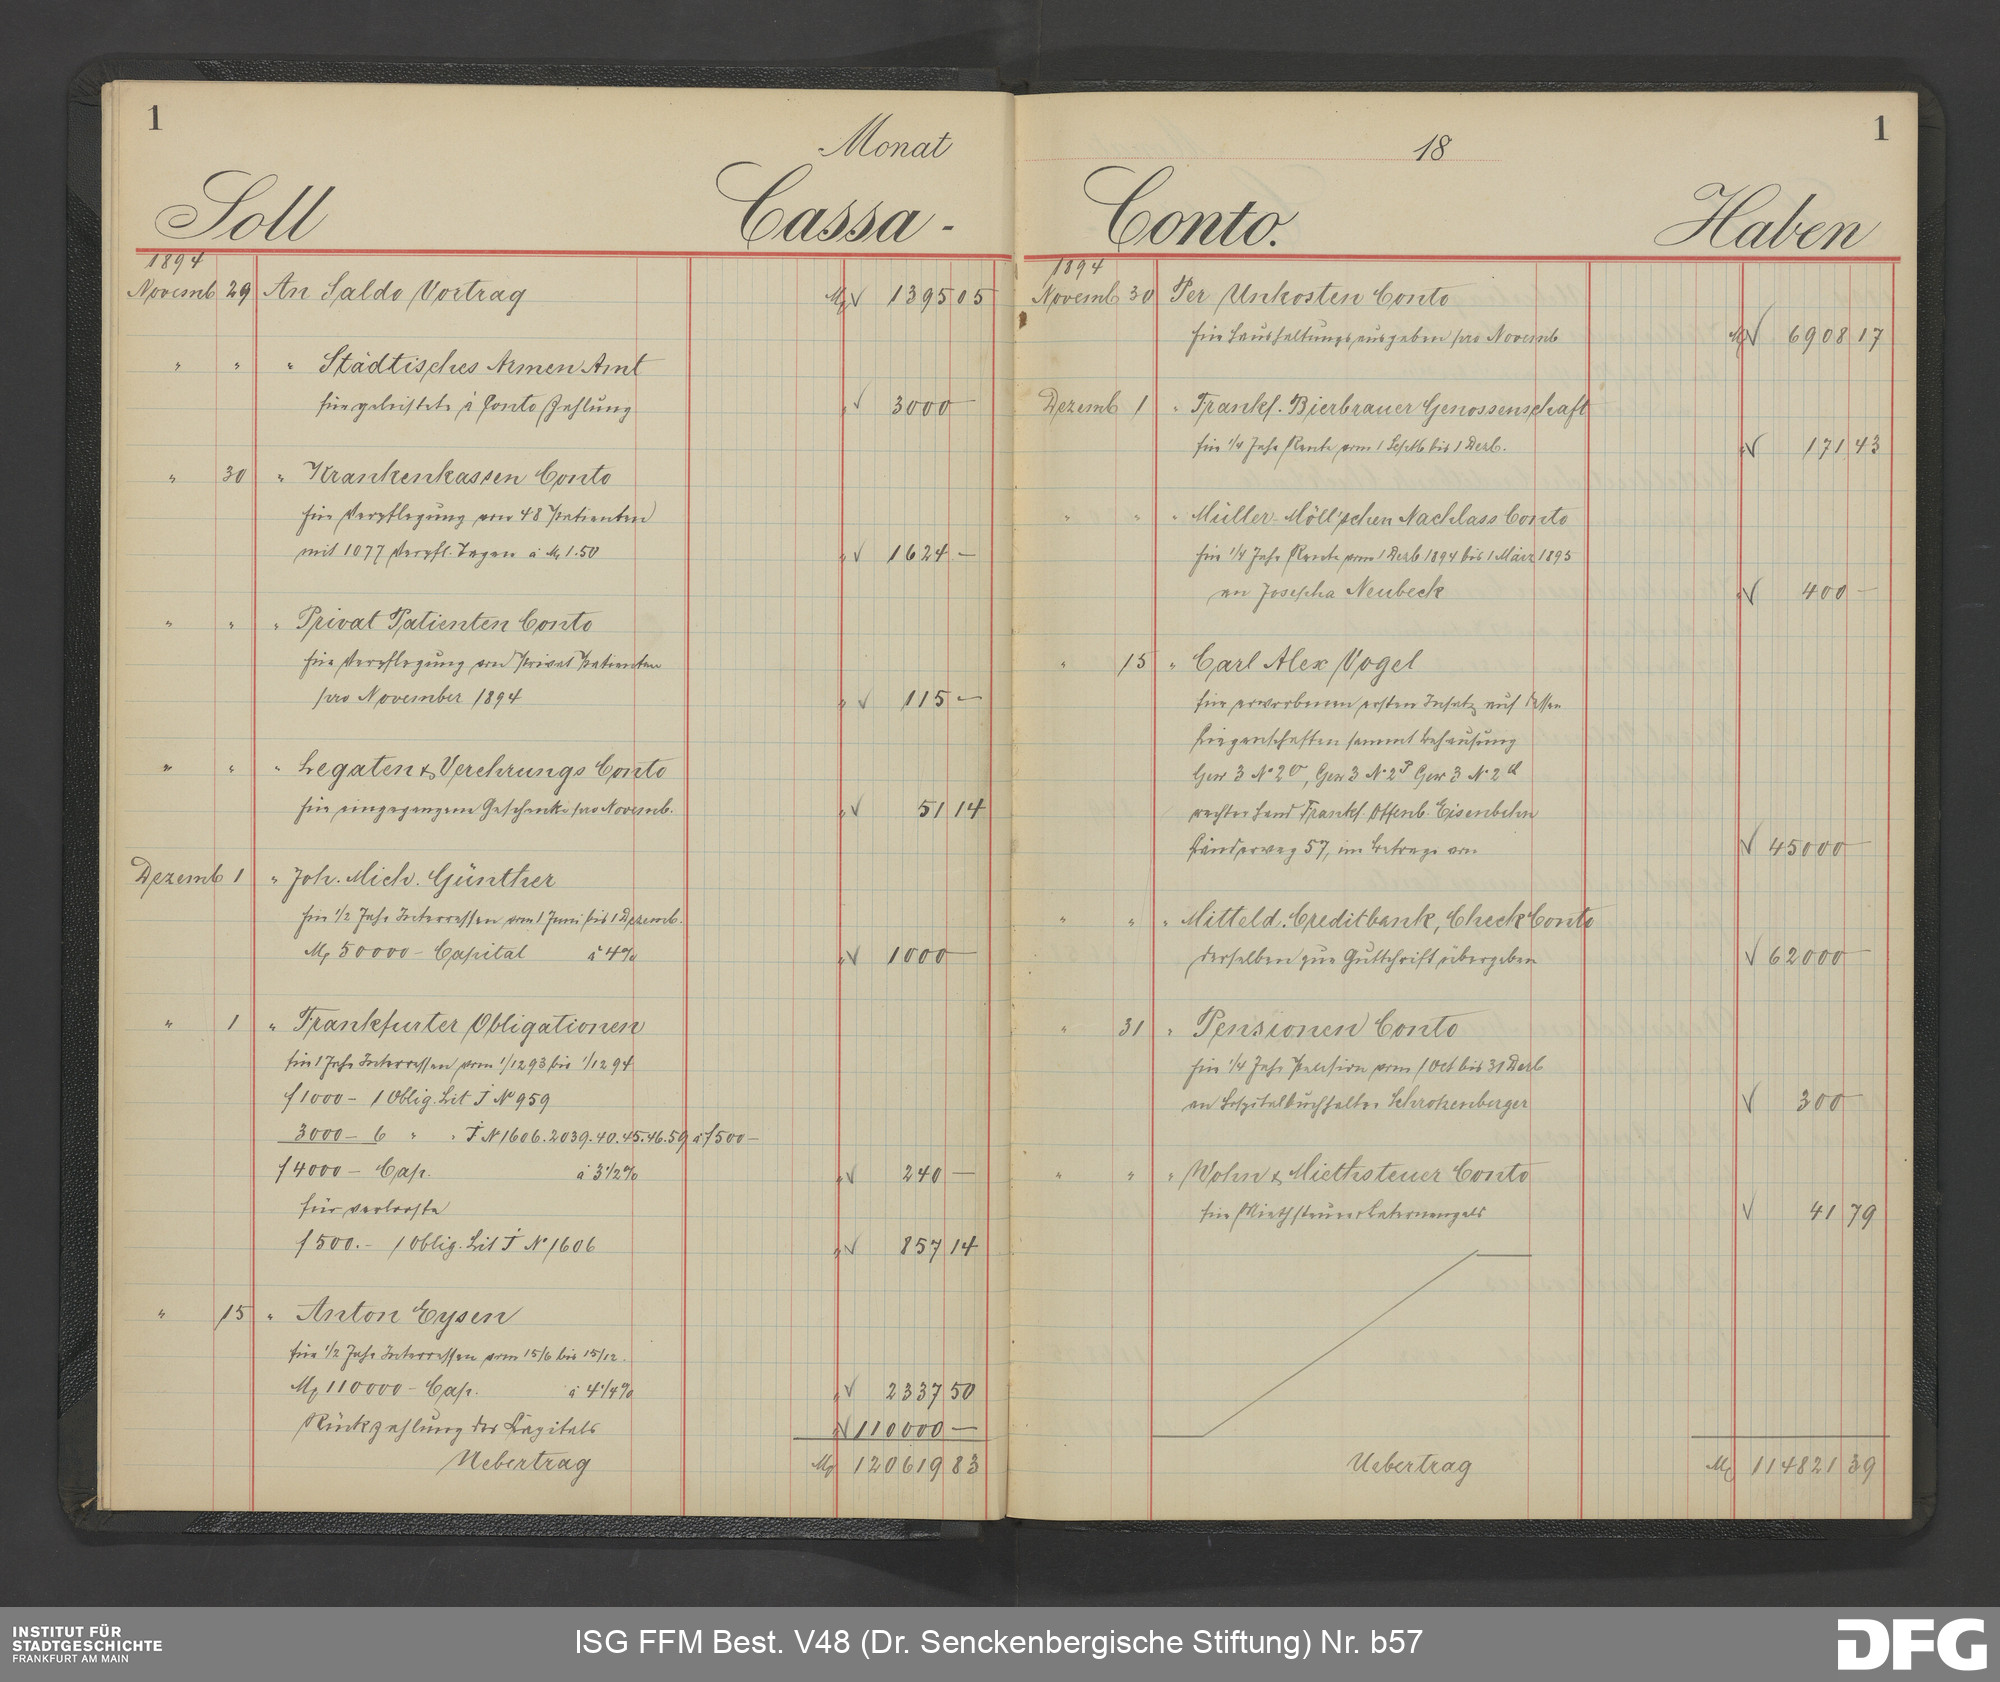 1
Monat
Soll
Cassa -
1894
Novemb 29 An Saldo Vortrag M √ 1395 05
" " " Städtisches Armen Amt
für geleistete à Conto Zahlung " √ 3000 —
" 30 " Krankenkassen Conto
für Verpflegung von 48 Patienten
mit 1077 Verpfl. Tagen à M 1.50 " √ 1624 —
" " " Privat Patienten Conto
für Verpflegung von Privat Patienten
pro November 1894 " √ 115 —
" " " Legaten & Verehrungs Conto
für eingegangene Geschenke pro Novemb. " √ 51 14
Dezemb 1 " Joh. Mich. Günther
für 1/2 Jahr Interressen vom 1 Juni bis 1 Dezemb.
M 50000 – Capital à 4% " √ 1000 —
" 1 " Frankfurter Obligationen
für 1 Jahr Interressen vom 1/12 93 bis 1/12 94
f 1000 – 1 Oblig. Lit J No 959
3000 – 6 " " J No 1606.2039.40.45.46.59 à f 500 –
f 4000 – Cap. à 3 1/2% " √ 240 —
für verlooste
f 500.– 1 Oblig. Lit J No 1606 " √ 857 14
" 15 " Anton Eysen
für 1/2 Jahr Interressen vom 15/6 bis 15/12.
M 110000 – Cap. à 4 1/4% " √ 2337 50
Rückzahlung des Capitals " √ 110000 —
Uebertrag M 120619 83
1
18
Conto.
Haben
1894
Novemb 30 Per Unkosten Conto
für Haushaltungsausgaben pro Novemb M √ 6908 17
Dezemb 1 " Frankf. Bierbrauer Genossenschaft
für 1/4 Jahr Rente vom 1 Septb bis 1 Dezb. " √ 171 43
" " " Müller-Möll'schen Nachlass Conto
für 1/4 Jahr Rente vom 1 Dezb 1894 bis 1 März 1895
an Josepha Neubeck " √ 400 —
" 15 " Carl Alex Vogel
für erworbenen ersten Insatz auf dessen
Liegenschaften sammt Behausung
Gew 3 No 2
rechter Hand Frankf. Offenb. Eisenbahn
57, im Betrage von √ 45000 —
" " " Mitteld. Creditbank, Check Conto
derselben zur Gutschrift übergeben √ 62000 —
" 31 " Pensionen Conto
für 1/4 Jahr Pension vom 1 Oct bis 31 Dezb
an Hospitalbuchhalter Schrotzenberger √ 300 —
" " " Wohn & Miethsteuer Conto
für Miethsteuer & Laternengeld √ 41 79
Uebertrag M 114821 39
INSTITUT FÜR
STADTGESCHICHTE
FRANKFURT AM MAIN
ISG FFM Best. V48 (Dr. Senckenbergische Stiftung) Nr. b57
DFG